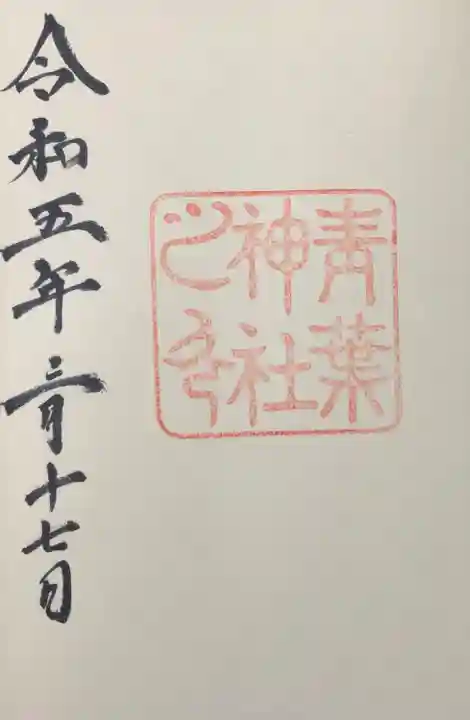 青葉
神社
之印
令和五年三月十七日